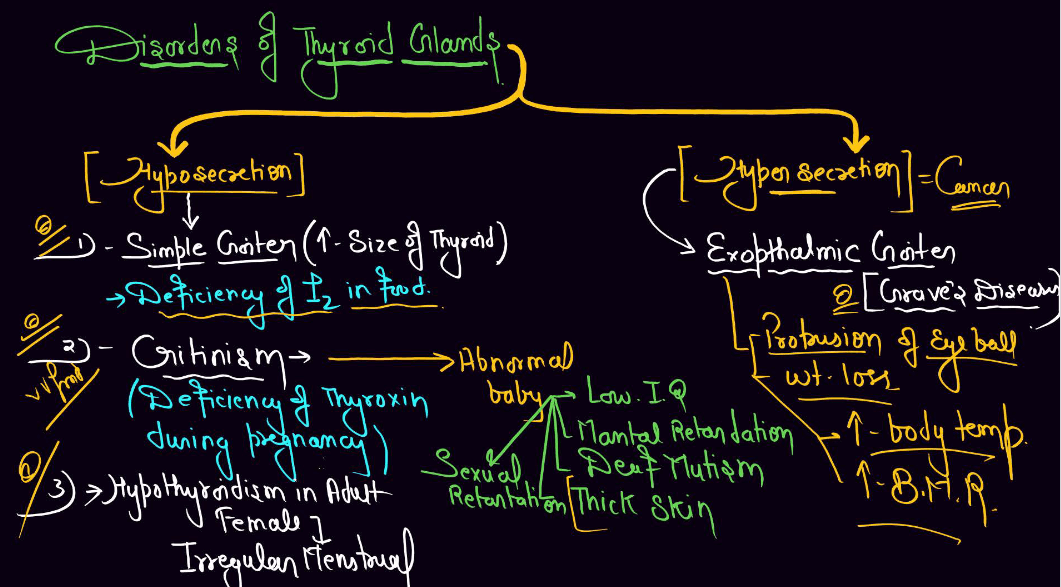 Disorders of Thyroid Glands
[Hyposecretion]
1) - Simple Goiter (↑ - Size of Thyroid)
→ Deficiency of I2 in food.
2) - Critinism → → Abnormal baby
(Deficiency of Thyroxin
during pregnancy)
Low. I.Q
Mantal Retandation
Deuf Mutism
Thick Skin
Sexual
Retantation
3) → Hypothyroidism in Adult
Female
Irregular Menstrual
[Hyper secretion] = Cancer
Exopthalmic Goiter
[Grave's Disease]
Protrusion of Eye ball
wt. loss
↑ - body temp.
↑ - B.M.R.